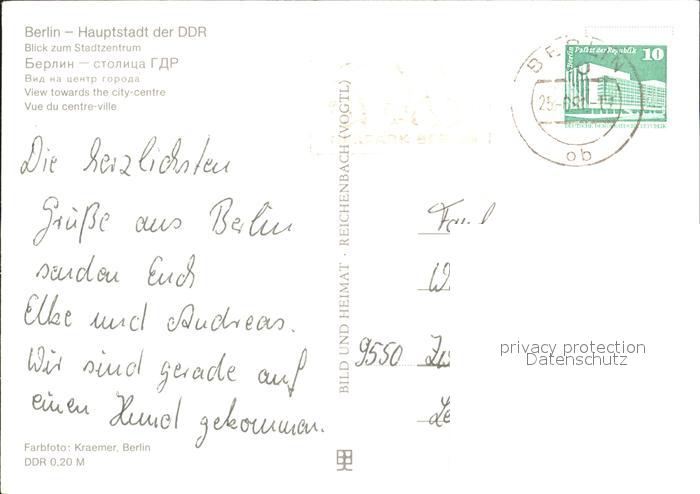 Berlin – Hauptstadt der DDR
Blick zum Stadtzentrum
Берлин — столица ГДР
Вид на центр города
View towards the city-centre
Vue du centre-ville
Die herzlichsten
Grüße aus Berlin
senden Euch
Elke und Andreas.
Wir sind gerade auf
einen Hund gekommen.
Farbfoto: Kraemer, Berlin
DDR 0,20 M
BILD UND HEIMAT · REICHENBACH (VOGTL)
BERLIN
ob
Berlin, Palast der Republik
10
DEUTSCHE DEMOKRATISCHE REPUBLIK
9550
privacy protection
Datenschutz